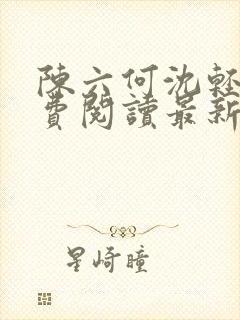 陳六何沈輕
費閱讀最新
星崎瞳